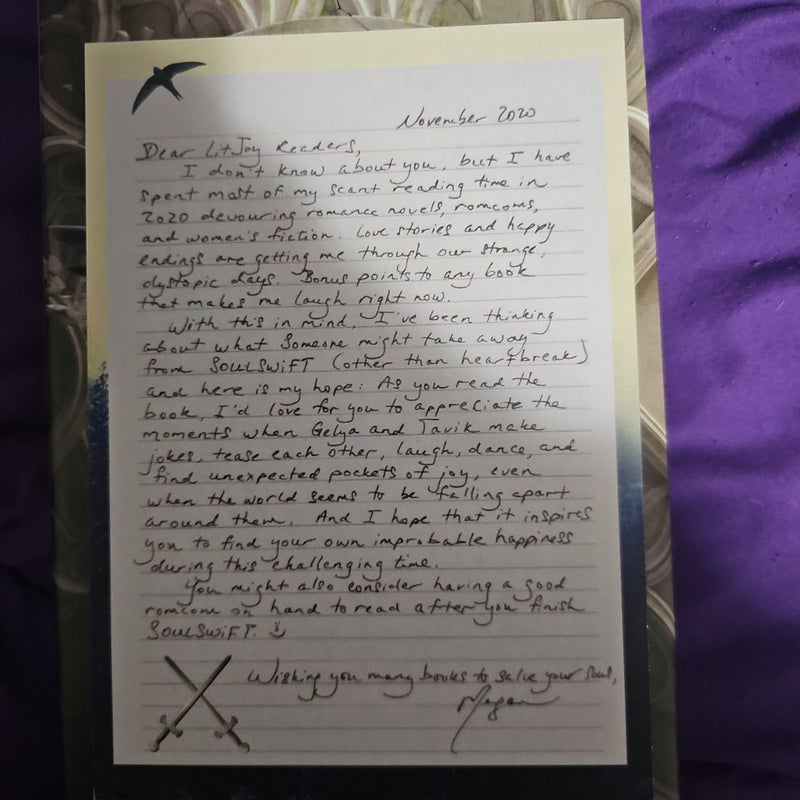 November 2020
Dear LitJoy Readers,
I don't know about you, but I have
spent most of my scant reading time in
2020 devouring romance novels, romcoms,
and women's fiction. Love stories and happy
endings are getting me through our strange,
dystopic days. Bonus points to any book
that makes me laugh right now.
With this in mind, I've been thinking
about what someone might take away
from SOULSWIFT (other than heartbreak)
and here is my hope: As you read the
book, I'd love for you to appreciate the
moments when Gelya and Tavik make
jokes, tease each other, laugh, dance, and
find unexpected pockets of joy, even
when the world seems to be falling apart
around them. And I hope that it inspires
you to find your own improbable happiness
during this challenging time.
You might also consider having a good
romcom on hand to read after you finish
SOULSWIFT. :)
Wishing you many books to salve your soul,
Megan